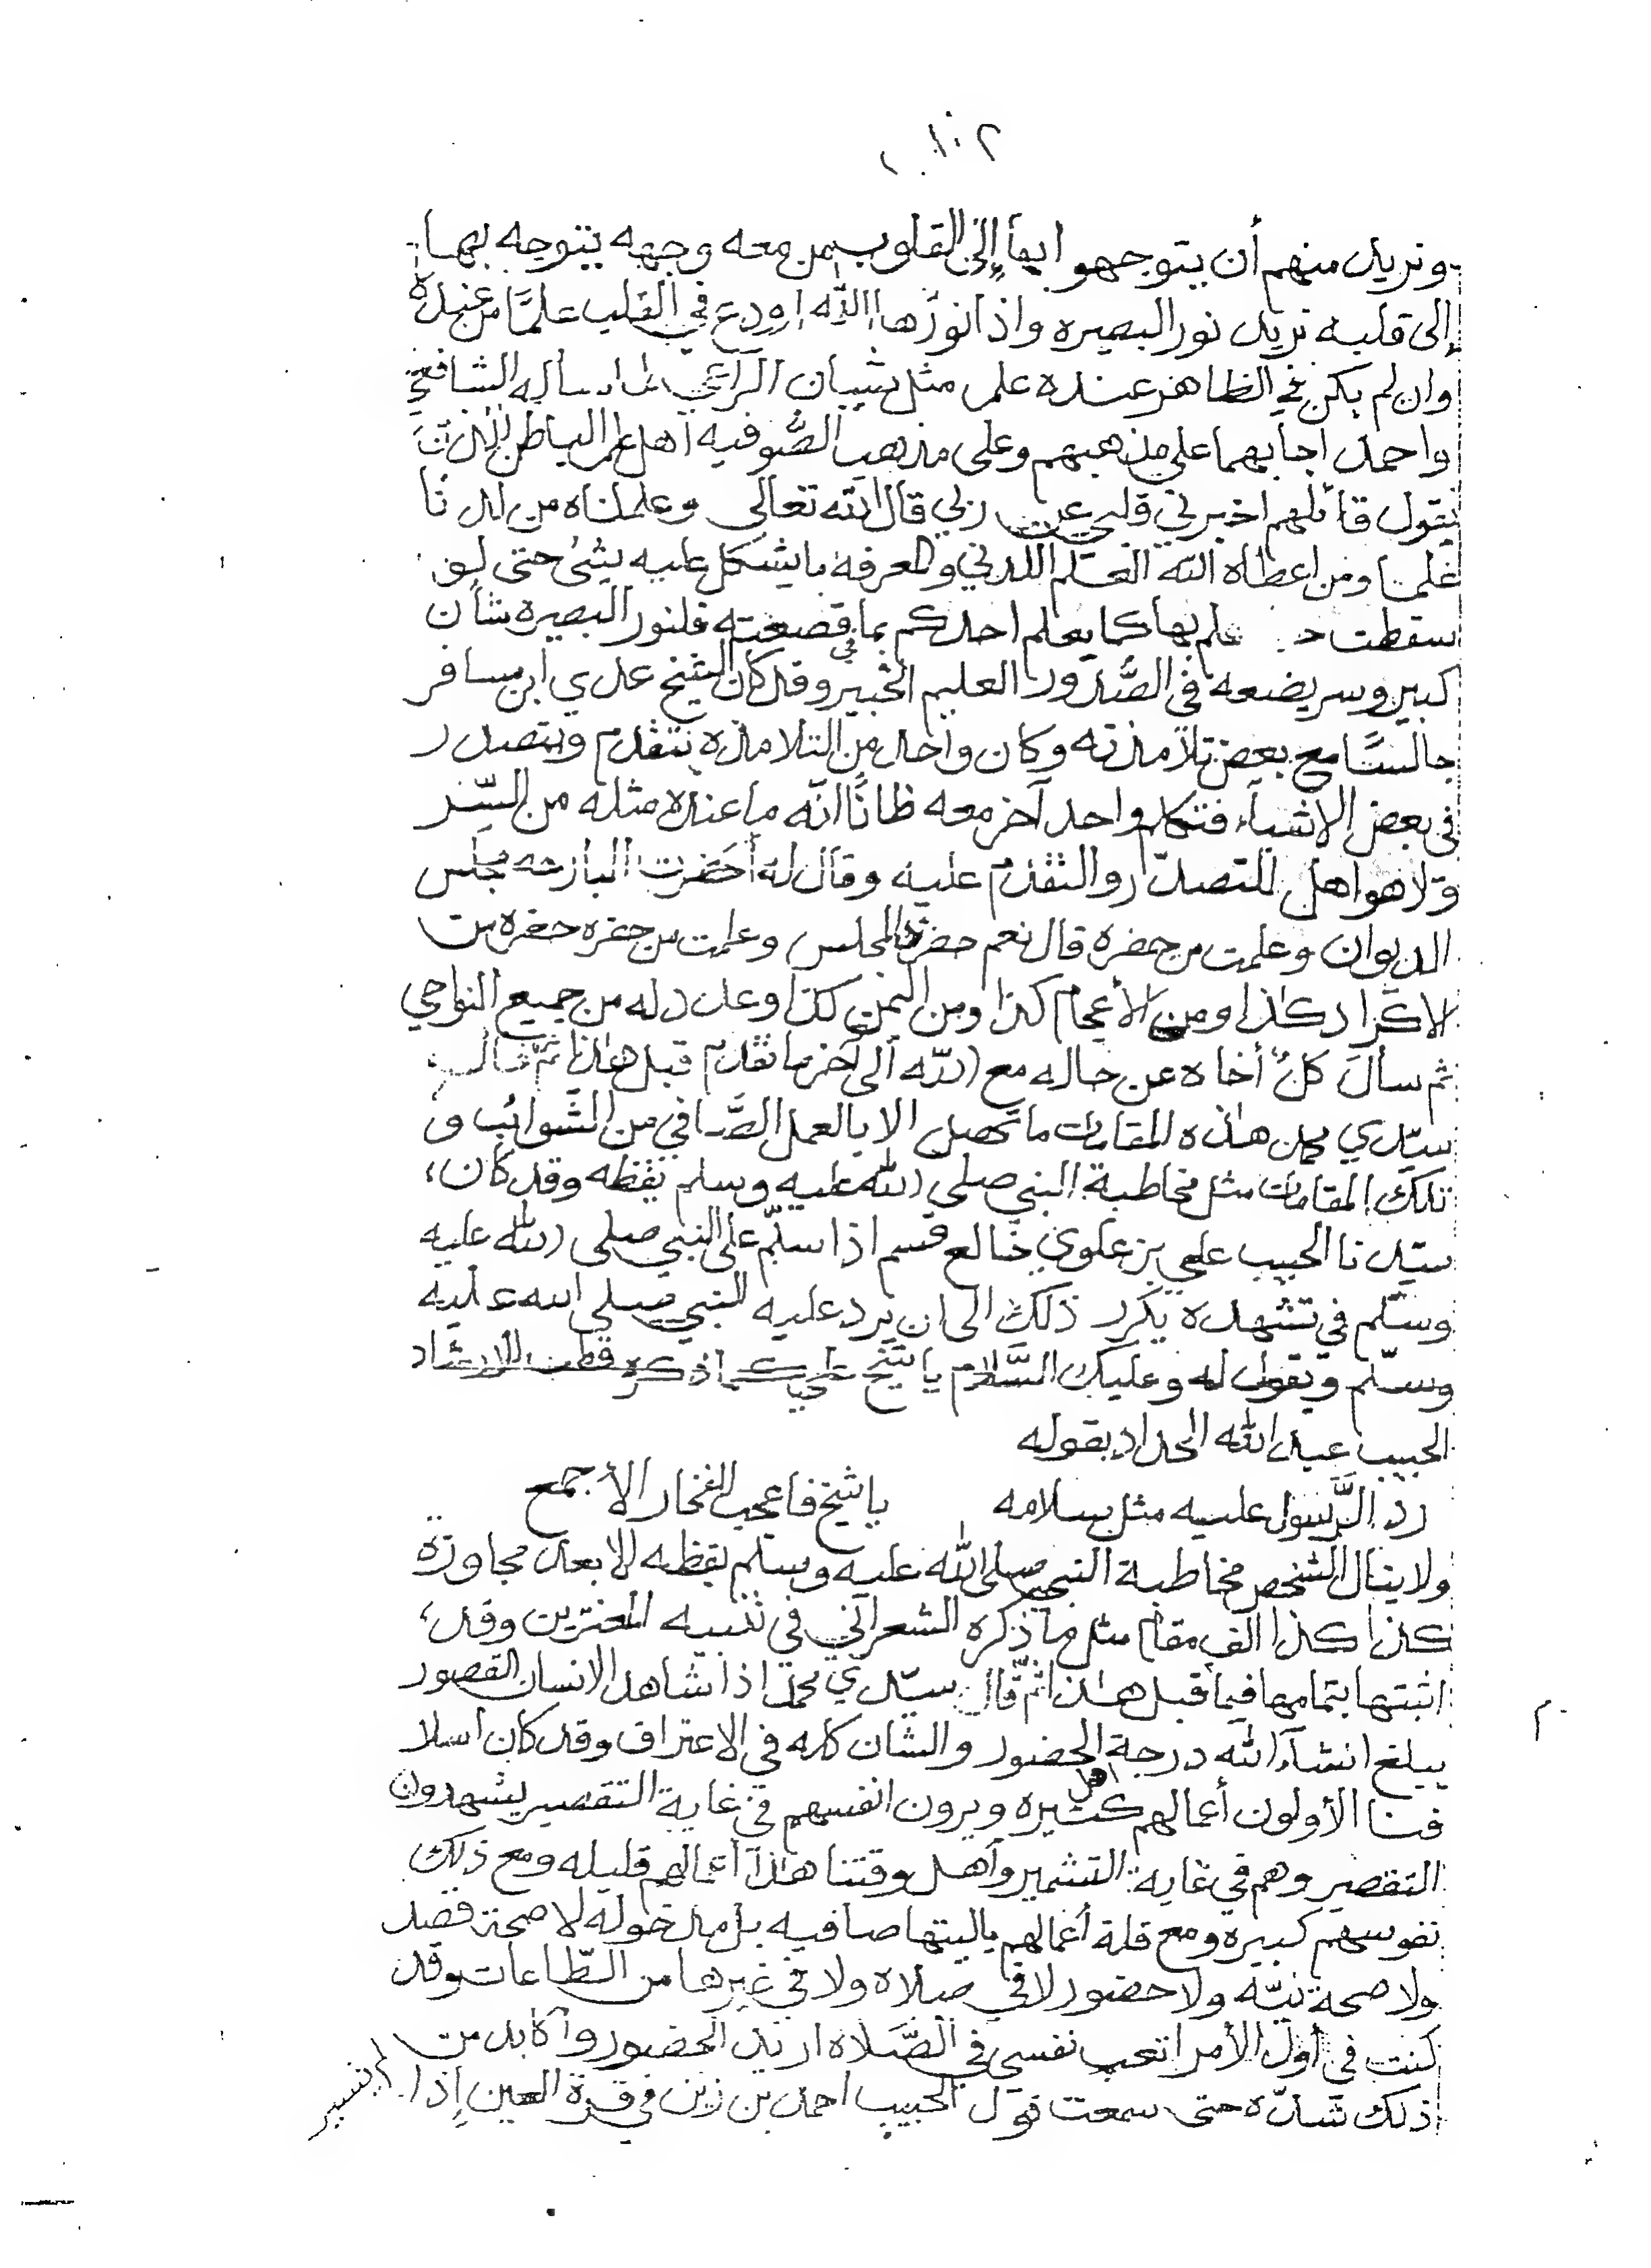 ونريد منهم أن يتوجهوا أيضاً إلى القلوب من معه وجهه يتوجه بها
إلى قلبه نريد نور البصيره واذا نورها الله اودع في القلب علمًا من عنده
وان لم يكن في الظاهر عنده علم مثل شيبان الراعي لما سأله الشافعي
واحمد اجابهما على مذهبهم وعلى مذهب الصُّوفيه أهل علم الباطن الذي
يقول قائلهم اخبرني قلبي عن ربي قال الله تعالى وعلمناه من لدنا
علما ومن اعطاه الله العلم اللدني والمعرفه ما يشكل عليه شئ حتى لو
سقطت علم بها كما يعلم احدكم بما في قصعته فلنور البصيره شأن
كبير وسر يضعه في الصُّدور العليم الخبير وقد كان الشيخ عدي ابن مسافر
جالسًا مع بعض تلامذته وكان واحد من التلامذه يتقدم ويتصدر
في بعض الاشياء فتكلم واحد آخر معه ظانًا انّه ما عنده مثله من السِّر
ولا هو اهل للتصدّر والتقدم عليه وقال له أحضرت البارحه مجلس
الديوان وعلمت من حضره قال نعم حضرت المجلس وعلمت من حضره حضره من
الاكراد كذا ومن الأعجام كذا ومن اليمن كذا وعدد له من جميع النواحي
ثم سأل كلٌ أخاه عن حاله مع الله الى آخر ما تقدم قبل هذا ثمّ قال
سيّدي محمد هذه المقامات ما تحصل الا بالعمل الصَّافي من الشَّوائب و
تلك المقامات مثل مخاطبة النبي صلى الله عليه وسلم يقظه وقد كان
سيّدنا الحبيب علي بن علوي خالع قسم اذا سلّم على النبي صلى الله عليه
وسلّم في تشهده يكرر ذلك الى ان يرد عليه النبي صلى الله عليه
وسلّم ويقول له وعليك السَّلام يا شيخ كما ذكره قطب الارشاد
الحبيب عبدالله الحداد بقوله
رد الرَّسول عليه مثل سلامه يا شيخ فاعجب للفخار الأجمع
ولا ينال الشخص مخاطبة النبي صلى الله عليه وسلّم يقظه الا بعد مجاوزة
كذا كذا الف مقام مثل ما ذكره الشعراني في تنبيه المغترين وقد
اثبتها بتمامها فيما قبل هذا ثمّ قال سيّدي محمد اذا شاهد الانسان القصور
يبلغ انشآء الله درجة الحضور والشان كله في الاعتراف وقد كان اسلا
فنا الأولون أعمالهم كثيره ويرون انفسهم في غاية التقصير يشهدون
التقصير وهم في غاية التشمير وأهل وقتنا هذا أعمالهم قليله ومع ذلك
نفوسهم كبيره ومع قلة أعمالهم ياليتها صافيه بل مدخوله لا صحة قصد
ولا صحة نيّه ولا حضور لا في صلاه ولا في غيرها من الطّاعات وقد
كنت في أول الأمر اتعب نفسي في الصَّلاه اريد الحضور وأكابد من
ذلك شدّه حتى سمعت قول الحبيب احمد بن زين في قرة العين إذا